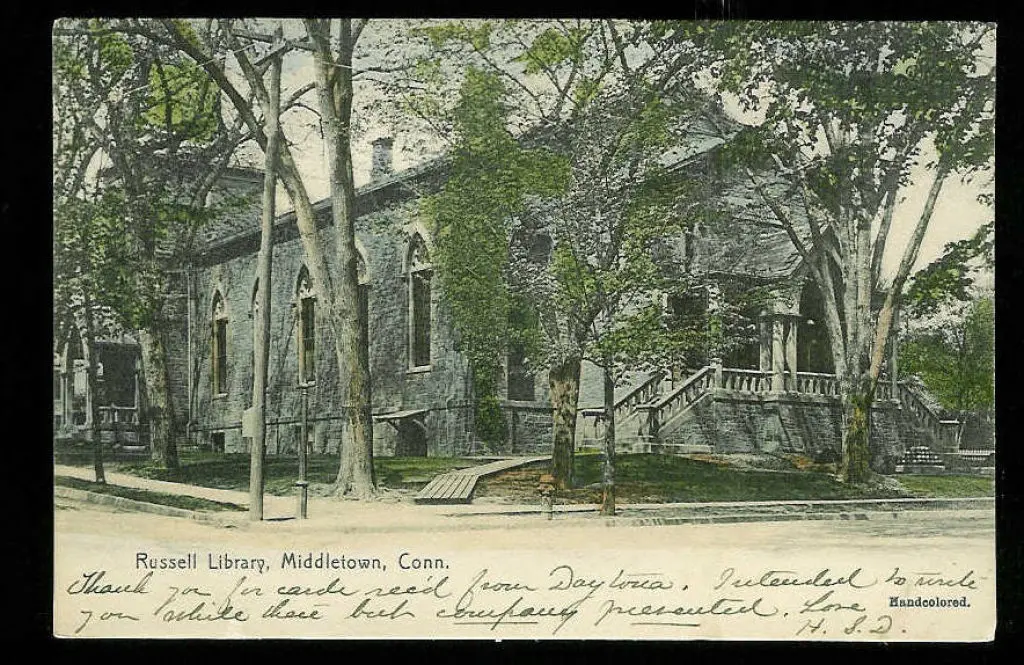 Russell Library, Middletown, Conn.
Thank you for cards rec'd from Daytona. Intended to write
you while there but company prevented. Love
Handcolored.
H. S. D.